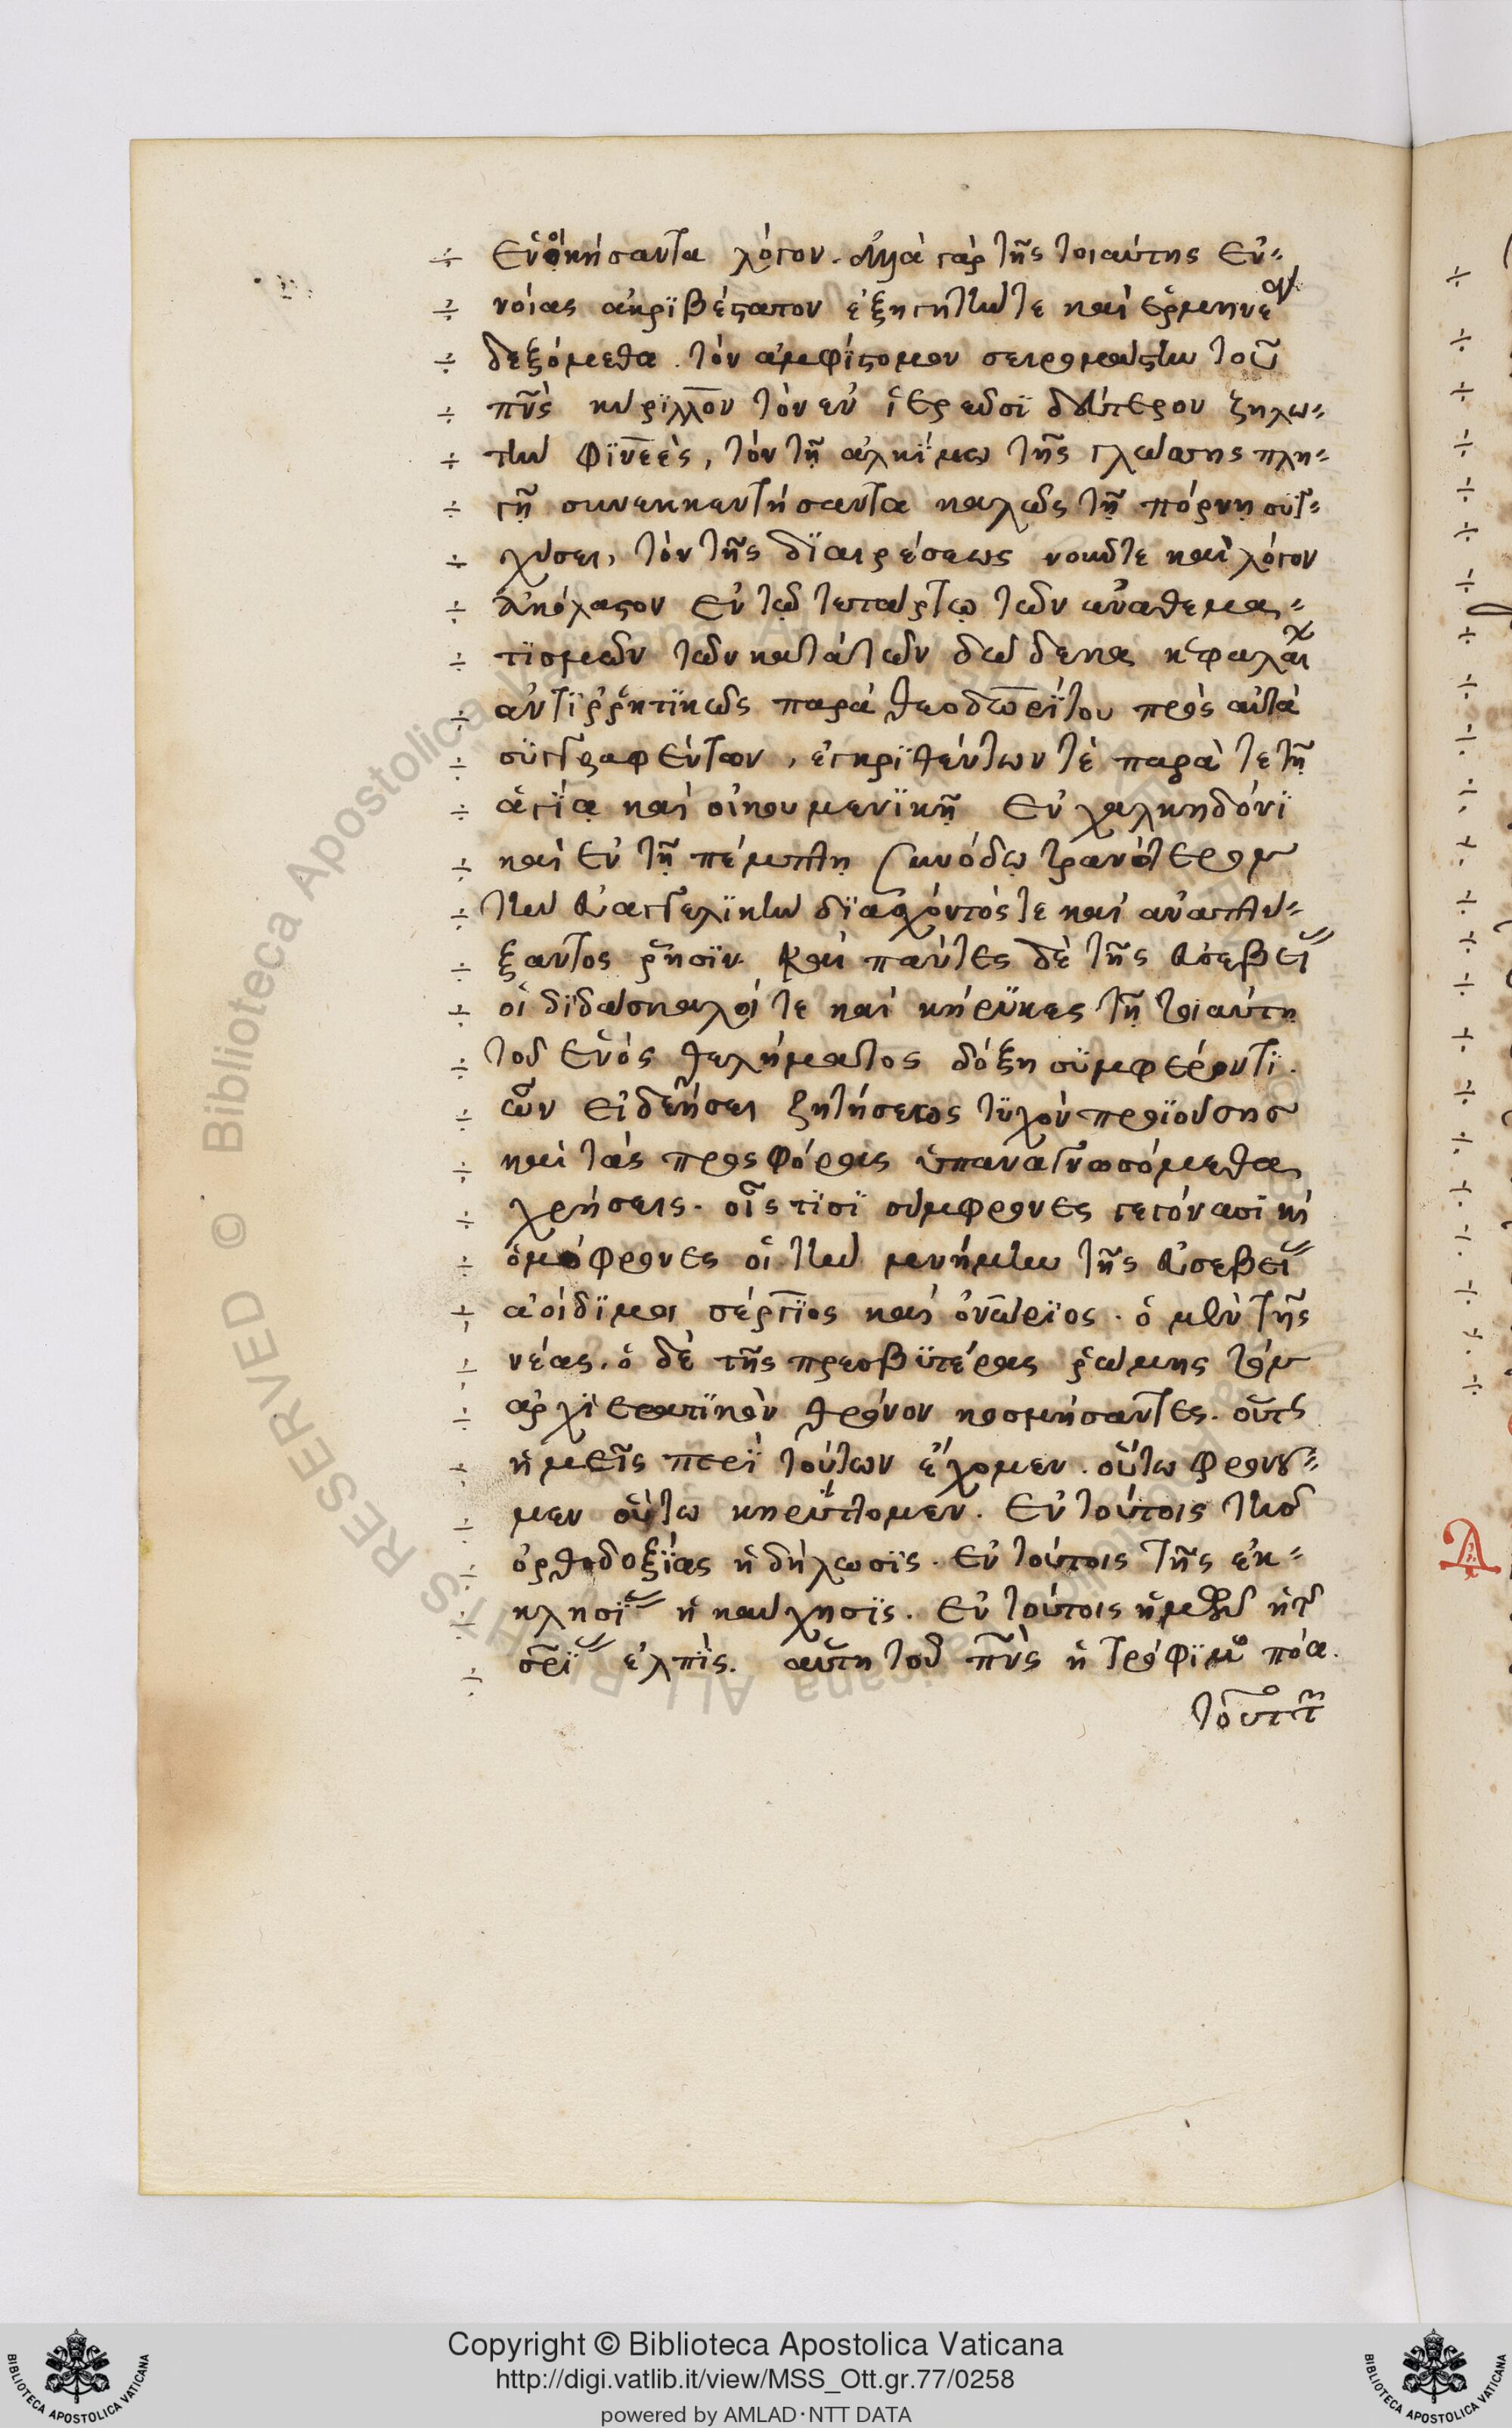 εὐδοκήσαντα λόγον. μετὰ γὰρ τῆς τοιαύτης εὐ-
νοίας ἀκριβέστατον ἐξηγητήν τε καὶ ἑρμηνέα
δεξόμεθα. τὸν ἀμφίστομον σειρομάστην τοῦ
πνς κύριλλον τὸν ἐν ἱερεῦσι δεύτερον ζηλω-
τὴν φινεὲς, τὸν τῇ ἀλκίμω τῆς γλώσσης πλη-
γῇ συνεκκεντήσαντα καλῶς τῇ πόρνῃ συγ-
χύσει, τὸν τῆς διαιρέσεως νοῦν τε καὶ λόγον
ἀκόλαστον ἐν τῷ τετάρτῳ τῶν ἀναθεμα-
τισμῶν τῶν κατὰ τῶν δώδεκα κεφαλαί
ἀντιῤῥητικῶς παρὰ θεοδωρίτου πρὸς αὐτὰ
συγγραφέντων, ἐγκριθέντων τὲ παρὰ τε τῇ
ἁγίᾳ καὶ οἰκουμενικῇ ἐν χαλκηδόνι
καὶ ἐν τῇ πέμπτῃ συνόδῳ τρανότερον
τὴν εὐαγγελικὴν διασχόντός τε καὶ ἀναπτύ-
ξαντος ῥῆσιν. καὶ πάντες δὲ τῆς εὐσεβεί
οἱ διδάσκαλοί τε καὶ κήρυκες τῇ τοιαύτῃ
τοῦ ἑνὸς θελήματος δόξῃ συμφέροντι.
ὧν εἰ δεήσει ζητήσεως τυχὸν προϊούσης
καὶ τὰς προσφόρους ὑπαναγνωσόμεθα
χρήσεις. οἷς τισὶ σύμφρονες γεγόνασι κ
ὁμόφρονες οἱ τὴν μνήμην τῆς εὐσεβεί
ἀοίδιμοι σέργιος καὶ ὀνώριος. ὁ μὲν τῆς
νέας. ὁ δὲ τῆς πρεσβυτέρας ῥώμης τὸν
ἀρχιερατικὸν θρόνον κοσμήσαντες. οὕτς
ἡμεῖς περὶ τούτων ἔχομεν. οὕτω φρονοῦ-
μεν οὕτω κηρύττομεν. ἐν τούτοις τῆς
ὀρθοδοξίας ἡ δήλωσις. ἐν τούτοις τῆς ἐκ-
κλησί ἡ καύχησις. ἐν τούτοις ἡμῶν ἡ τ
σρί ἐλπὶς. αὕτη τοῦ πνς ἡ τρόφιμο πόα.